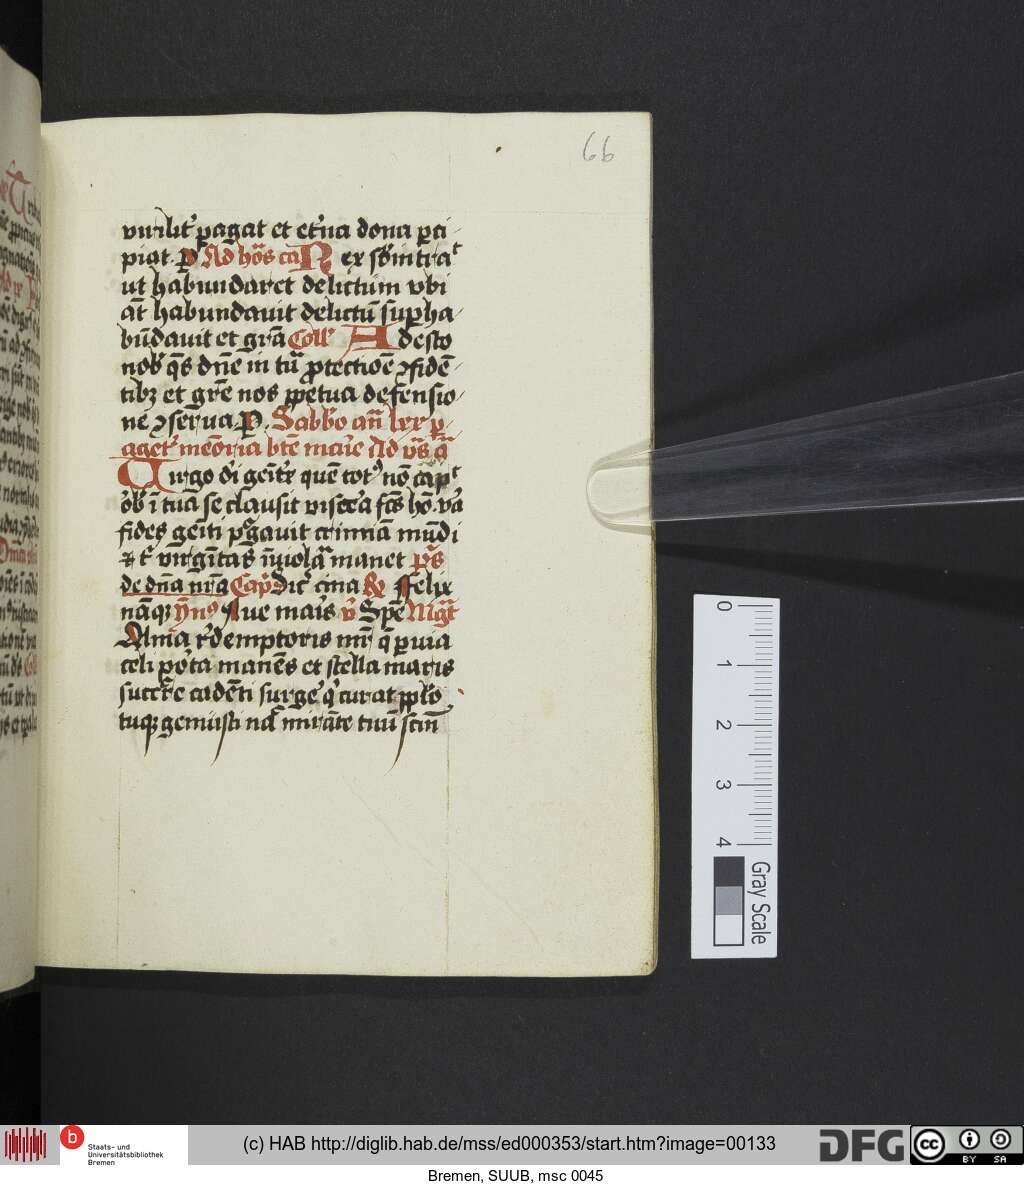 66
virilit' pagat et et'na dona p̱ci
piat. P Ad hōs ca Rex s'm intra't
ut habundaret delictum vbi
āt habundauit delictū sup̱ha
būdauit et grā Coll' Adesto
nob' q̄s dn̄e in tū protectiōe ꝯfidē
tibꝫ et gr̄e nos ꝑpetua defensio
ne ꝯserua. P. Sabb'o an̄ lxx p̱
aget' memoria btē marie Ad v̄s ā
Virgo d'i genit' quē tot9 nō cap't
orb' ī tua se clausit viscera fc̄s hō. v'a
fides geniti purgauit crimina mūdi
⁊ t' virgītas īuiolata manet p̄s
de dn̄a nr̄a Cap' Sic' cina ℟ Felix
nāqꝫ yn9 Aue maris v' Spē Mgt
Alma r'demptoris mr̄ q̄ ꝑuia
celi porta manēs et stella maris
succ're cadēti surge' q' curat pp̄lo
tuqꝫ genuisti nāt mirāte tuū scm̄
0 1 2 3 4
Gray Scale
b Staats- und
Universitätsbibliothek
Bremen
(c) HAB http://diglib.hab.de/mss/ed000353/start.htm?image=00133
DFG
cc BY SA
Bremen, SUUB, msc 0045